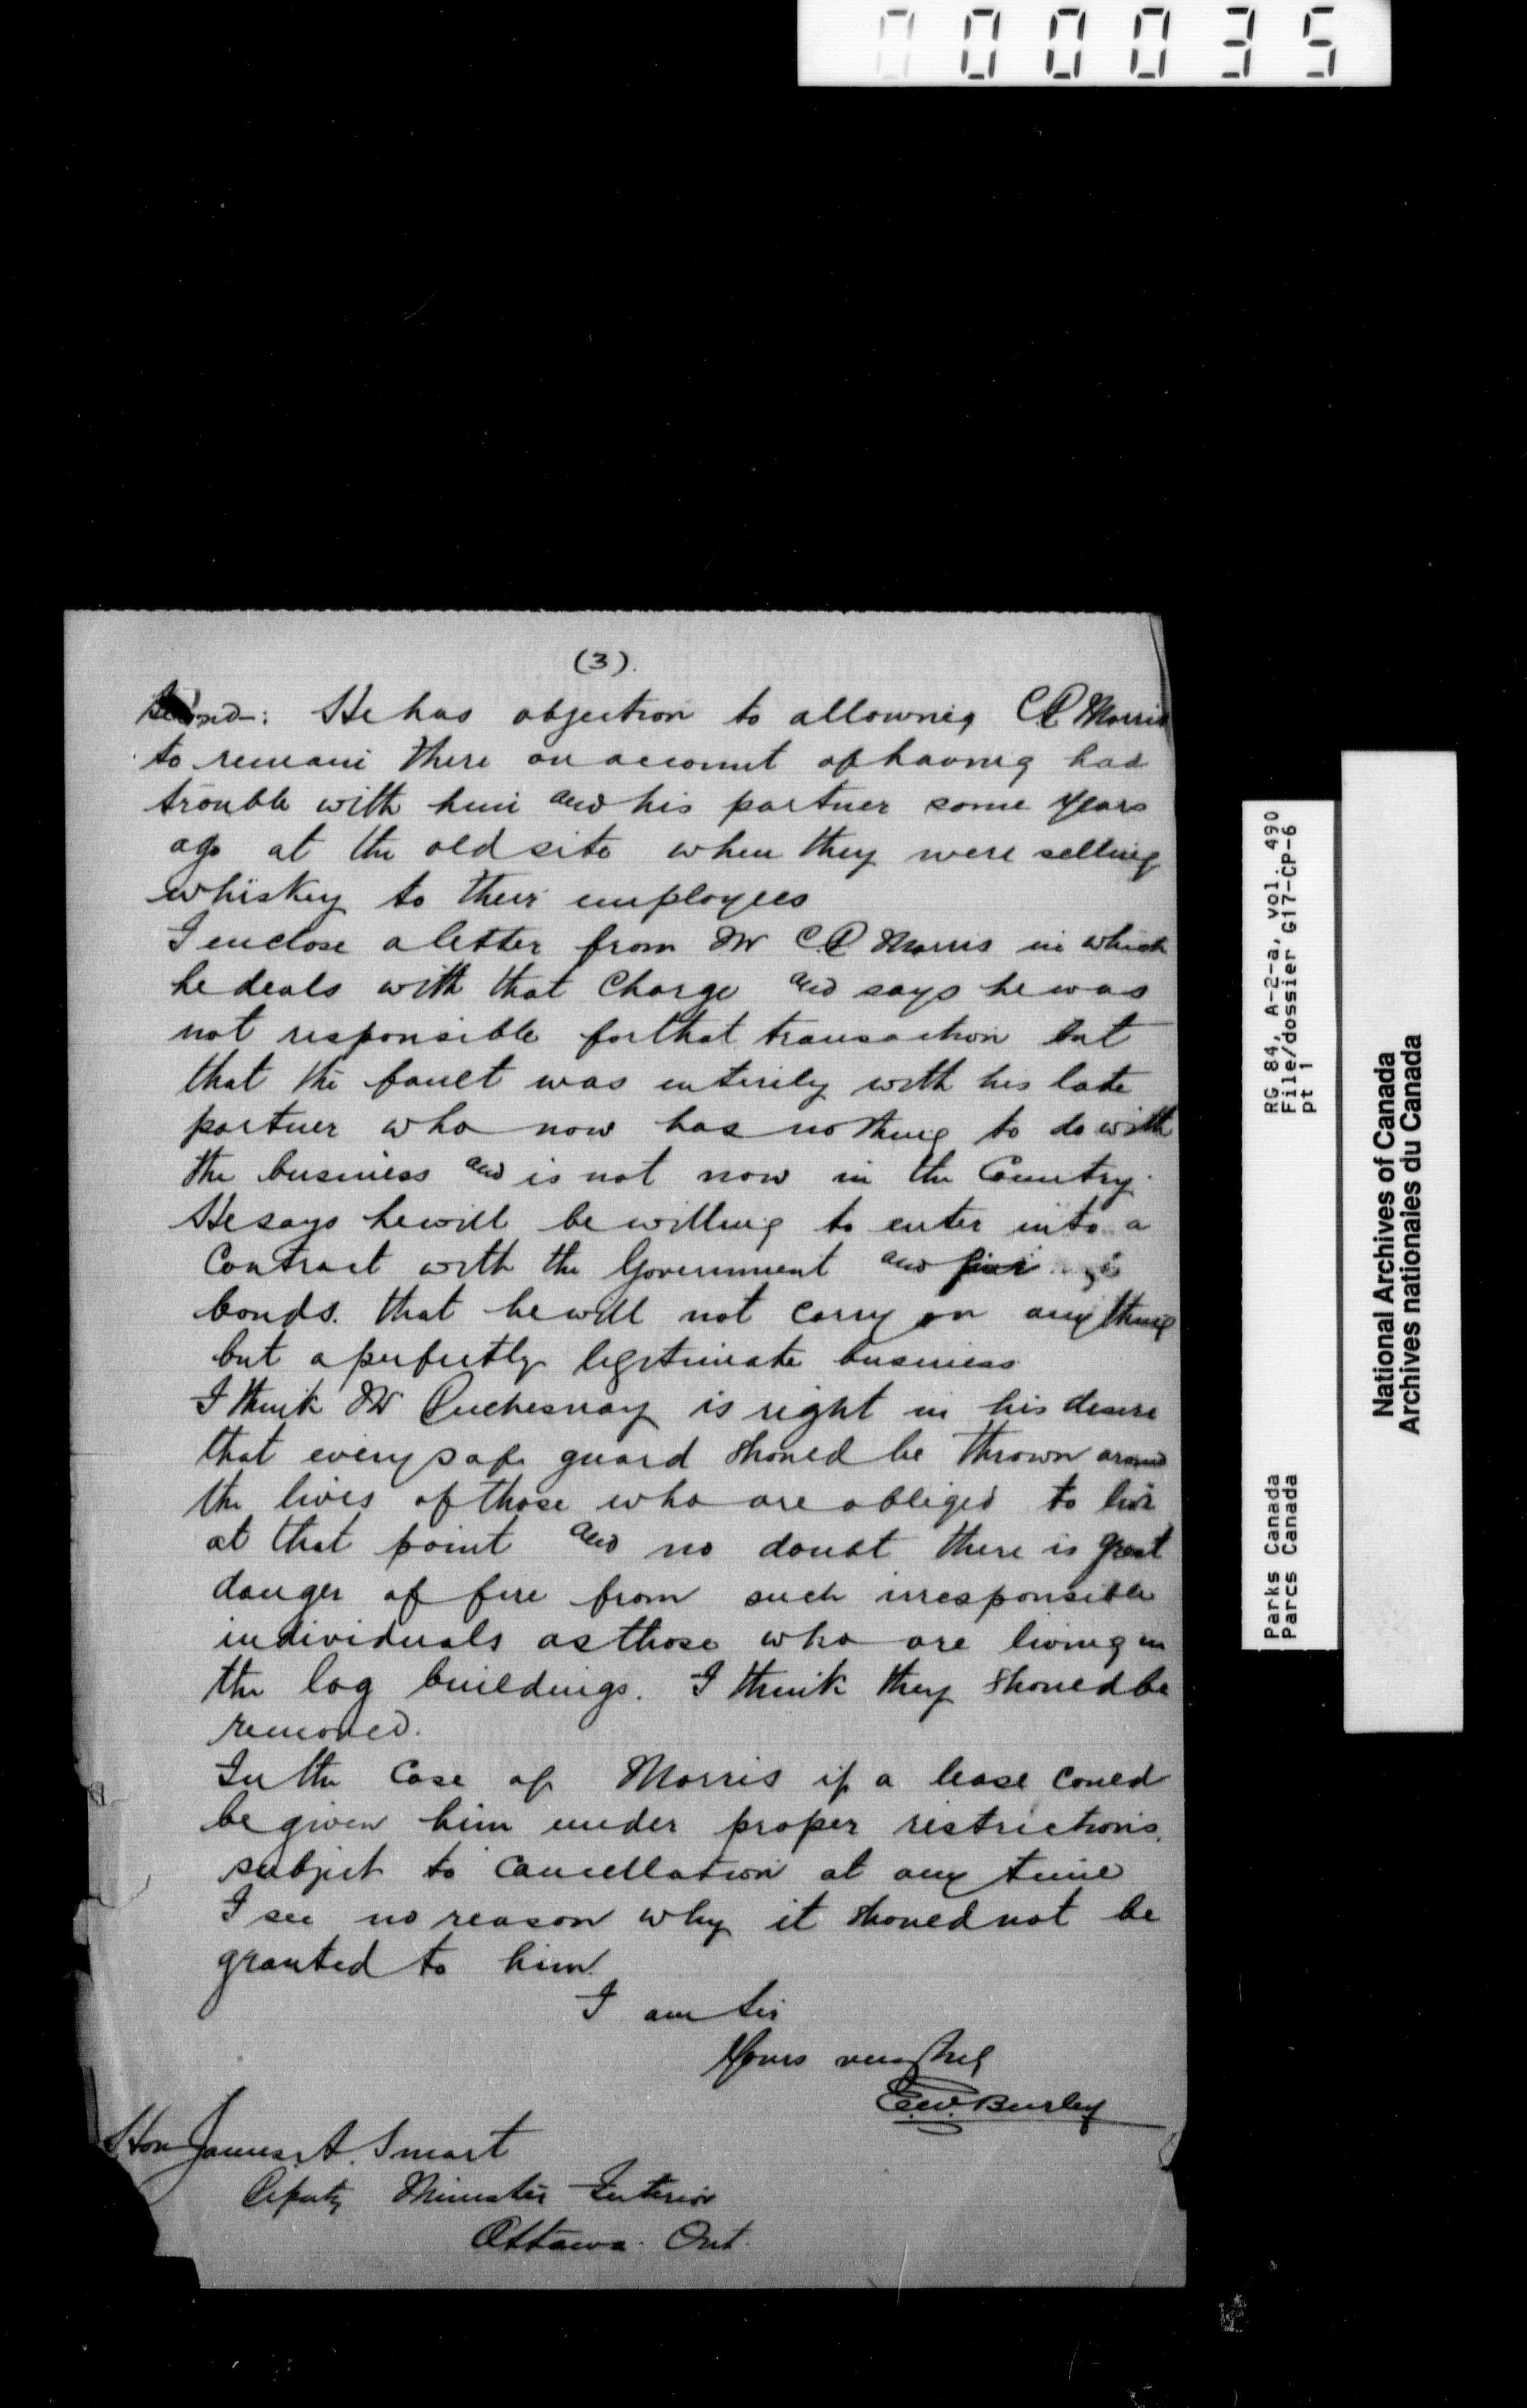 000035
(3).
Second: He has objection to allowing C.P. Morris
to remain there on account of having had
trouble with him and his partner some years
ago at the old site when they were selling
whiskey to their employees
I enclose a letter from Mr C.P. Morris in which
he deals with that charge and says he was
not responsible for that transaction but
that the fault was entirely with his late
partner who now has nothing to do with
the business and is not now in the Country.
He says he will be willing to enter into a
Contract with the Government and
bonds. that he will not carry on any thing
but a perfectly legitimate business
I think Mr Duchesnay is right in his desire
that every safe guard should be thrown around
the lives of those who are obliged to live
at that point and no doubt there is great
danger of fire from such irresponsible
individuals as those who are living in
the log buildings. I think they should be
removed.
In the Case of Morris if a lease could
be given him under proper restrictions.
subject to cancellation at any time
I see no reason why it should not be
granted to him.
I am Sir
Yours very truly
Hon James. A. Smart
Deputy Minister Interior
Ottawa. Ont.
RG 84, A-2-a, vol. 490
File/dossier G17-CP-6
pt 1
Parks Canada
Parcs Canada
National Archives of Canada
Archives nationales du Canada